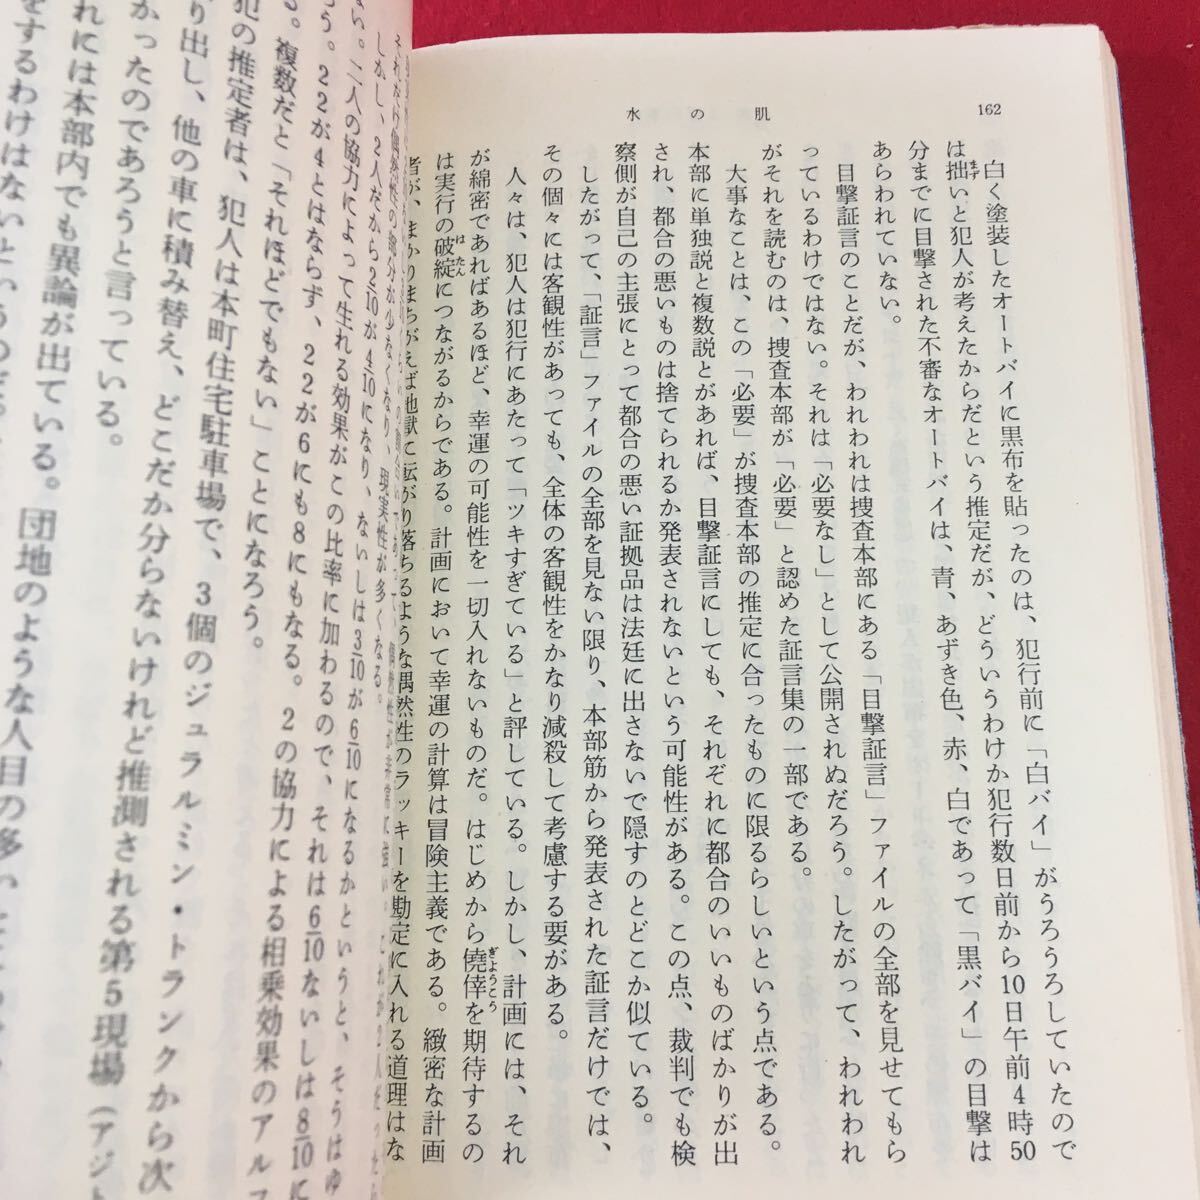 162
水の肌
白く塗装したオートバイに黒布を貼ったのは、犯行前に「白バイ」がうろうろしていたので
は拙いと犯人が考えたからだという推定だが、どういうわけか犯行数日前から10日午前4時50
分までに目撃された不審なオートバイは、青、あずき色、赤、白であって「黒バイ」の目撃は
あらわれていない。
目撃証言のことだが、われわれは捜査本部にある「目撃証言」ファイルの全部を見せてもら
っているわけではない。それは「必要なし」として公開されぬだろう。したがって、われわれ
がそれを読むのは、捜査本部が「必要」と認めた証言集の一部である。
大事なことは、この「必要」が捜査本部の推定に合ったものに限るらしいという点である。
本部に単独説と複数説とがあれば、目撃証言にしても、それぞれに都合のいいものばかりが出
され、都合の悪いものは捨てられるか発表されないという可能性がある。この点、裁判でも検
察側が自己の主張にとって都合の悪い証拠品は法廷に出さないで隠すのとどこか似ている。
したがって、「証言」ファイルの全部を見ない限り、本部筋から発表された証言だけでは、
その個々には客観性があっても、全体の客観性をかなり減殺して考慮する要がある。
人々は、犯人は犯行にあたって「ツキすぎている」と評している。しかし、計画には、それ
が綿密であればあるほど、幸運の可能性を一切入れないものだ。はじめから僥倖を期待するの
は実行の破綻につながるからである。計画において幸運の計算は冒険主義である。緻密な計画
者が、まかりまちがえば地獄に転がり落ちるような偶然性のラッキーを勘定に入れる道理はな
それだけ偶然性の部分が少なくなり、現実性が多くなる。
しかし、2人だから2/10が4/10になり、ないしは3/10が6/10になるかというと、そうはゆ
ない。二人の協力によって生れる効果がこの比率に加わるので、それは6/10ないしは8/10に
ろう。22が4とはならず、22が6にも8にもなる。2の協力による相乗効果のアルフ
る。複数だと「それほどでもない」ことになろう。
犯の推定者は、犯人は本町住宅駐車場で、3個のジュラルミン・トランクから次
り出し、他の車に積み替え、どこだか分らないけれど推測される第5現場(アジト
かったのであろうと言っている。
れには本部内でも異論が出ている。団地のような人目の多い
をするわけはないというのだ。